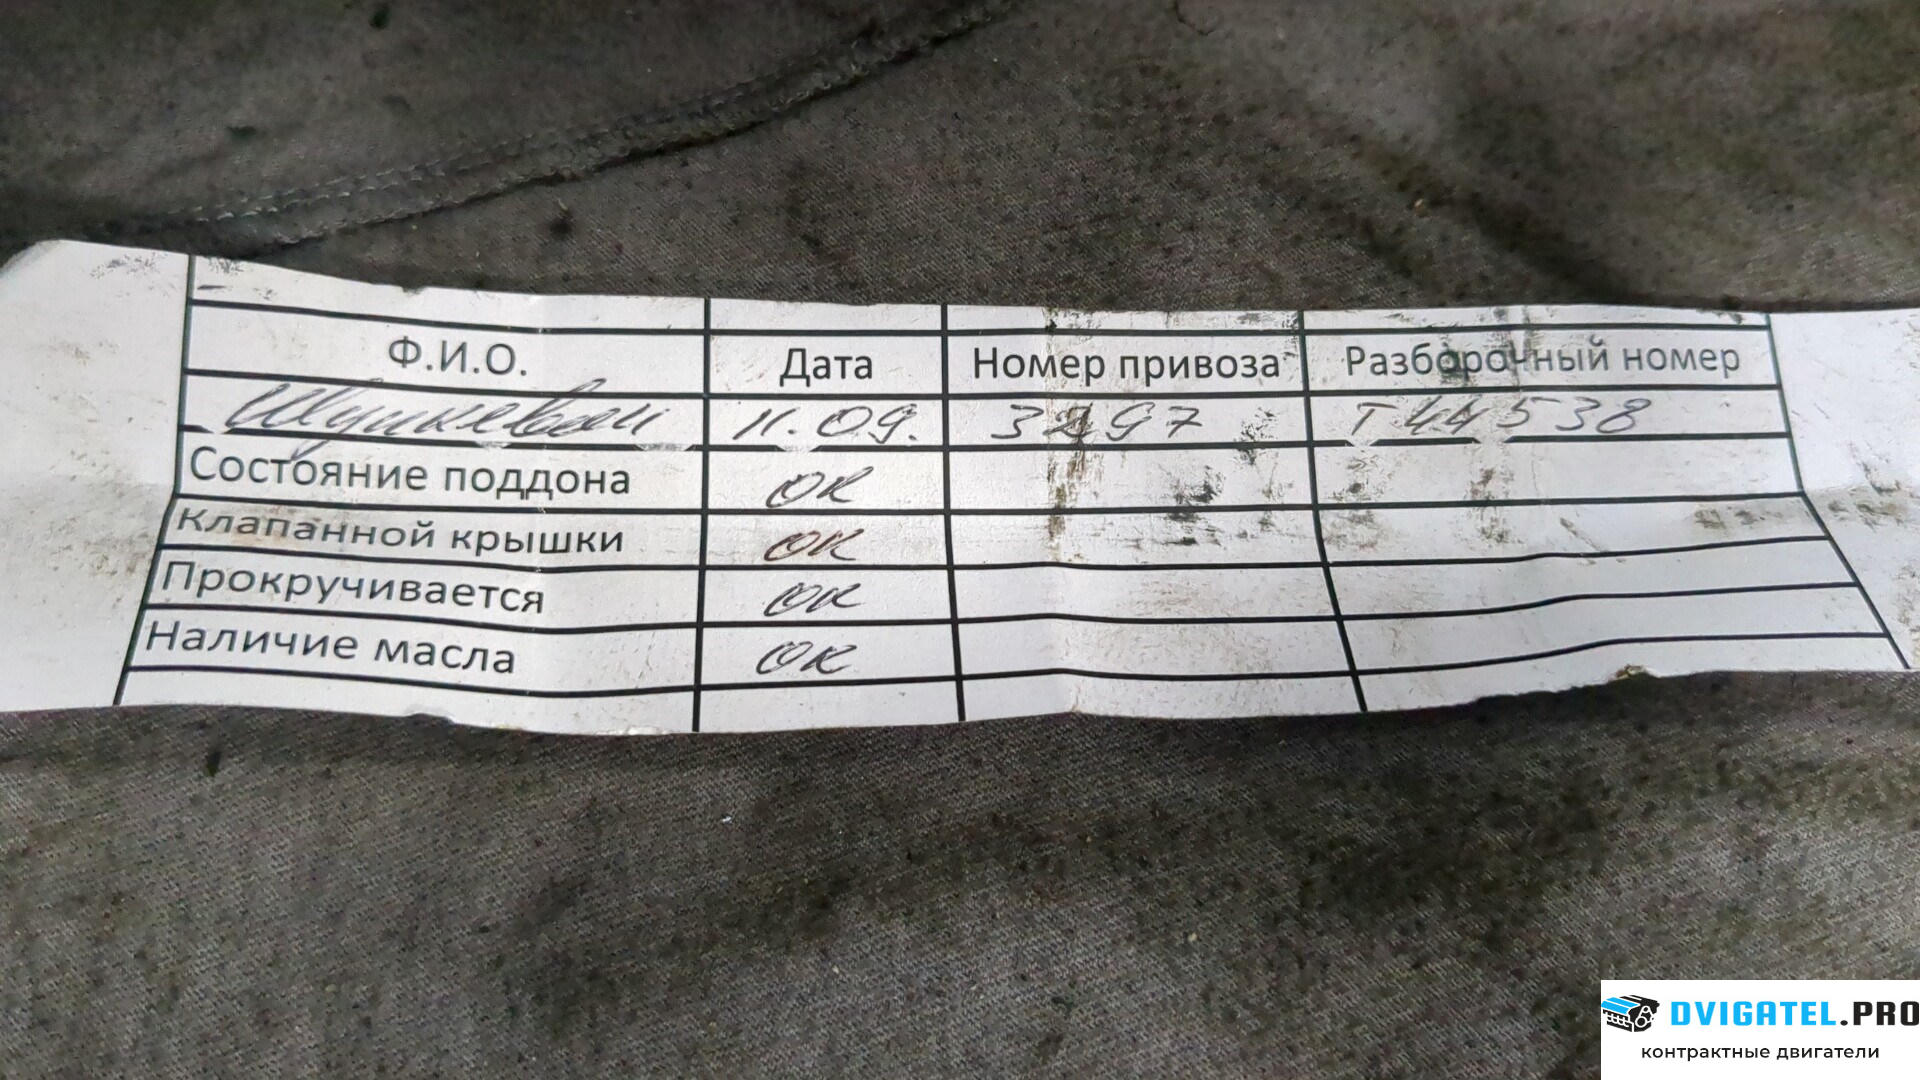 Ф.И.О. Дата Номер привоза Разборочный номер
11.09. 3297 T44538
Состояние поддона ок
Клапанной крышки ок
Прокручивается ок
Наличие масла ок
DVIGATEL.PRO
контрактные двигатели